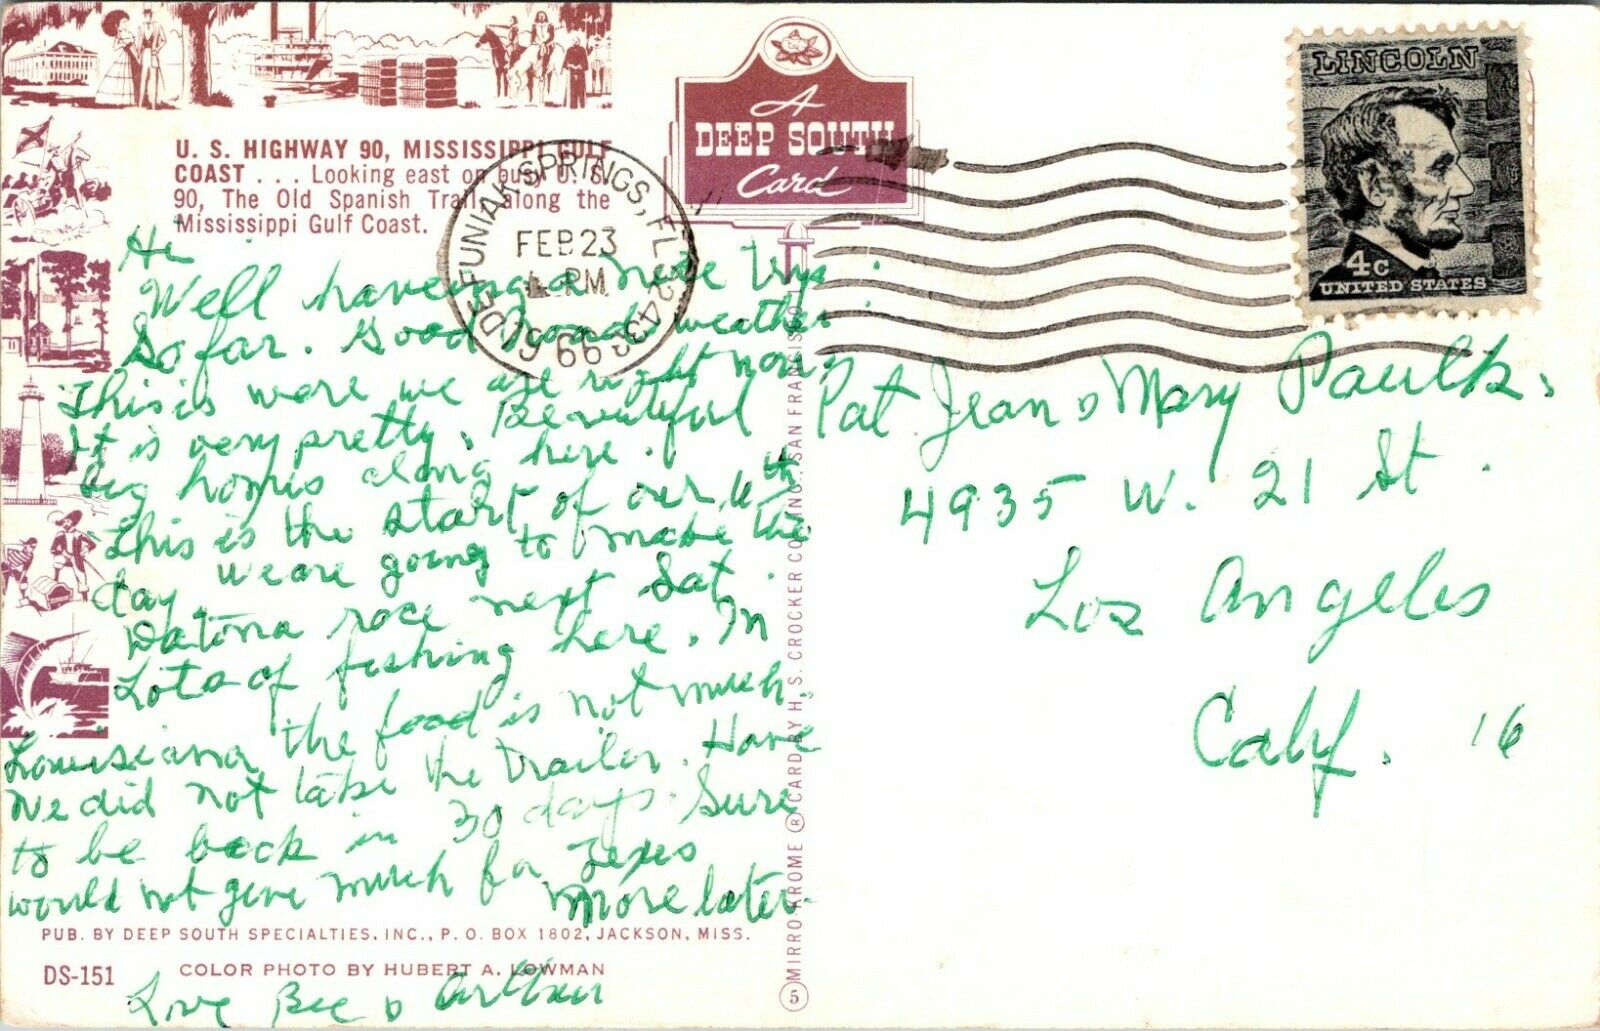 U. S. HIGHWAY 90, MISSISSIPPI GULF
COAST . . . Looking east on busy U. S.
90, The Old Spanish Trail, along the
Mississippi Gulf Coast.
A
DEEP SOUTH
Card
DE FUNIAK SPRINGS, FLA. 32433
FEB 23
PM
LINCOLN
4c
UNITED STATES
Hi
Well haveing a nice tryp
So far. Good roads weather
This is were we are right now.
It is very pretty. Beautiful
big homes along here.
This is the start of our 11th
day. We are going to make the
Datona race next Sat.
Lots of fishing here. In
Louisiana the food is not much.
We did not take the trailer. Have
to be back in 30 days. Sure
would not give much for Texes
More later.
Love Bee & Arthur
Pat Jean & Mary Paulk.
4935 W. 21 St.
Los Angeles
Calif. 16
PUB. BY DEEP SOUTH SPECIALTIES, INC., P. O. BOX 1802, JACKSON, MISS.
DS-151 COLOR PHOTO BY HUBERT A. LOWMAN
5 MIRRO-KROME ® CARD BY H. S. CROCKER CO., INC., SAN FRANCISCO